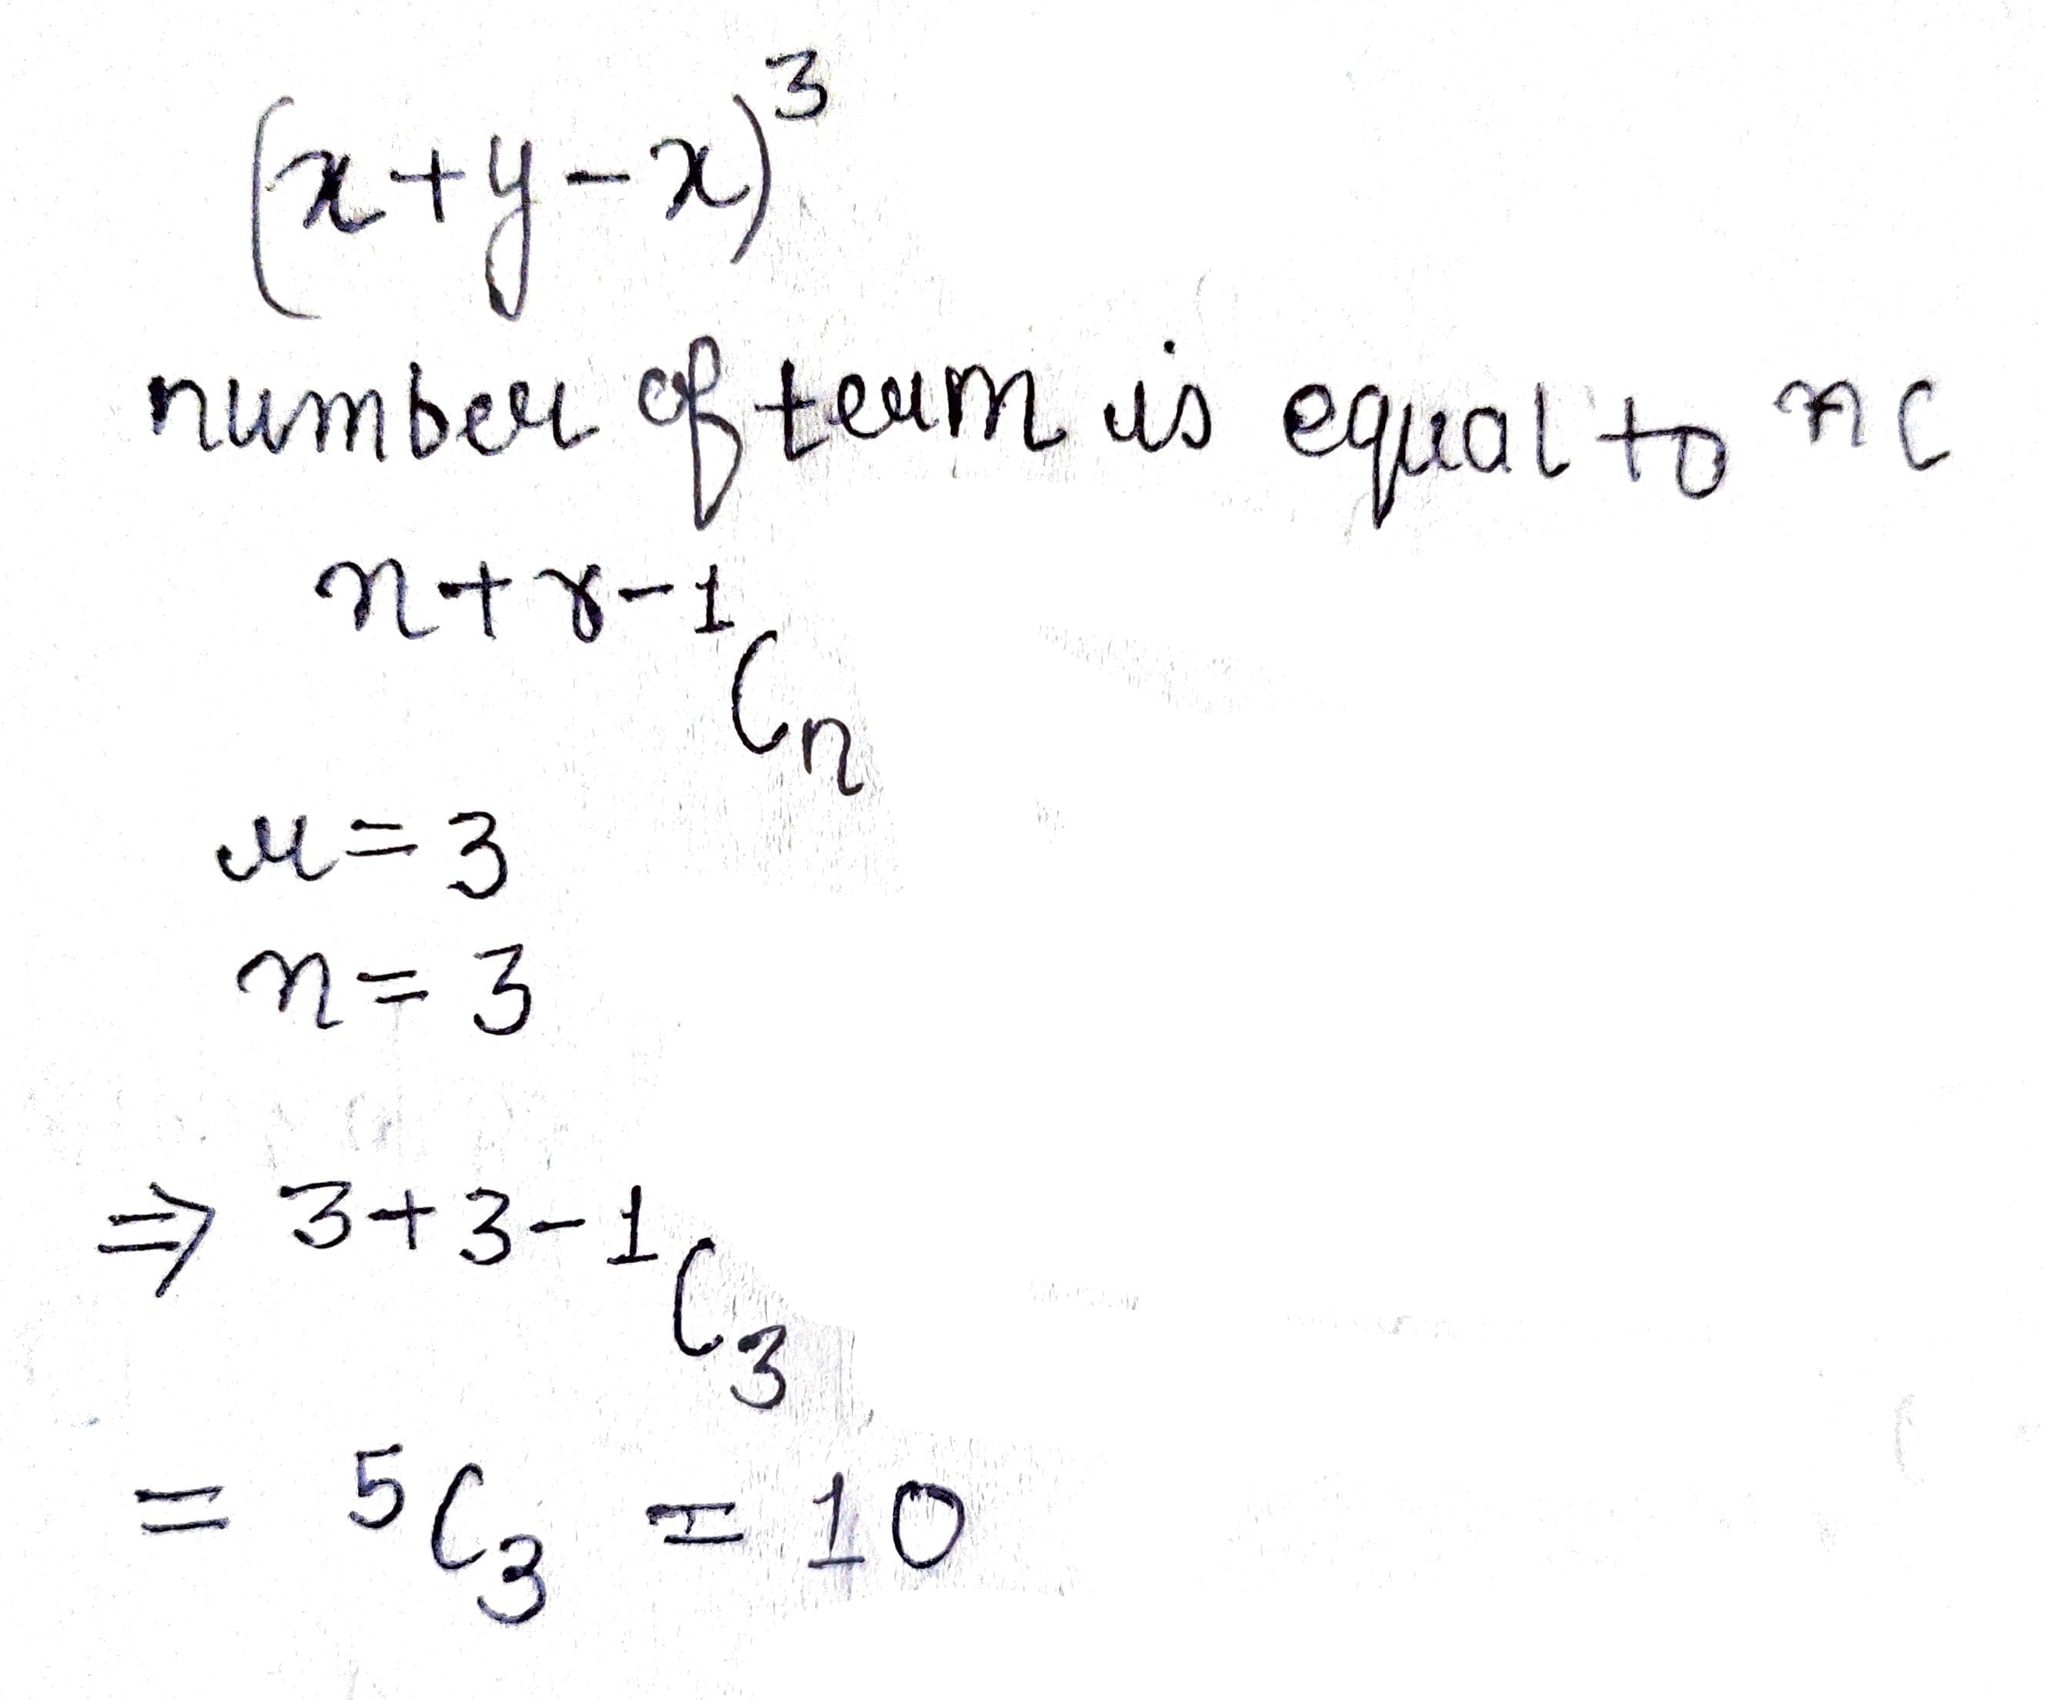 (x+y-x)³
number of term is equal to nC
n+r-1Cₙ
r=3
n=3
⇒ 3+3-1C₃
= ⁵C₃ = 10